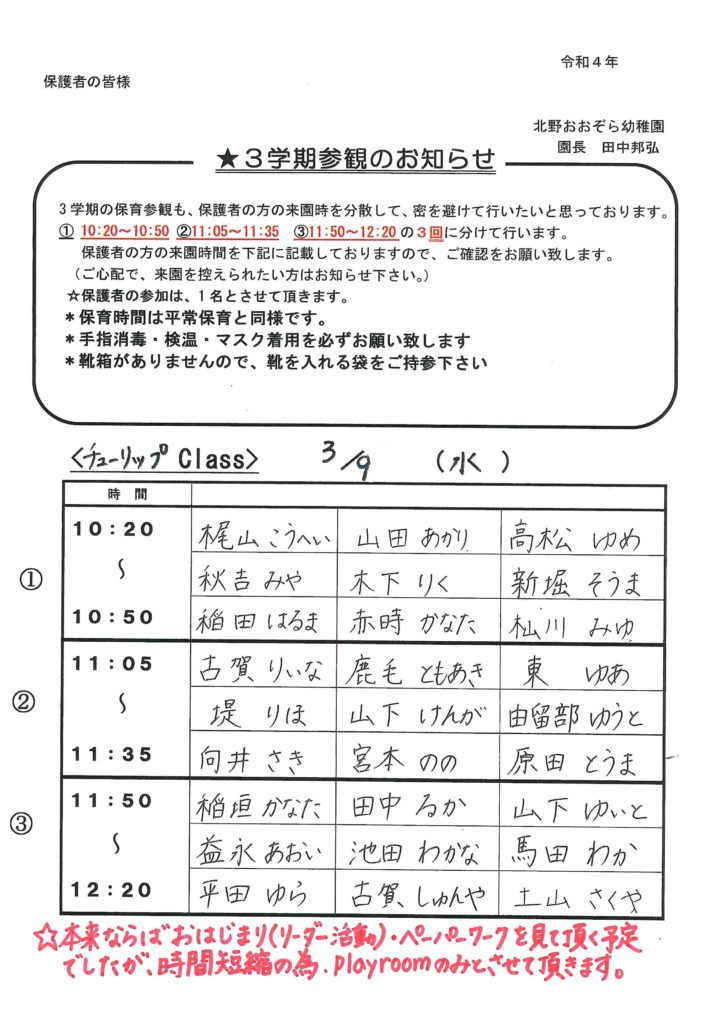 令和４年
保護者の皆様
北野おおぞら幼稚園
園長　田中邦弘
★３学期参観のお知らせ
３学期の保育参観も、保護者の方の来園時を分散して、密を避けて行いたいと思っております。
① 10:20～10:50 ②11:05～11:35 ③11:50～12:20の３回に分けて行います。
保護者の方の来園時間を下記に記載しておりますので、ご確認をお願い致します。
（ご心配で、来園を控えられたい方はお知らせ下さい。）
☆保護者の参加は、１名とさせて頂きます。
＊保育時間は平常保育と同様です。
＊手指消毒・検温・マスク着用を必ずお願い致します
＊靴箱がありませんので、靴を入れる袋をご持参下さい
<チューリップ Class> 3/9 (水)
時　間
① 10：20 ～ 10：50
梶山 こうへい 山田 あかり 高松 ゆめ
秋吉 みや 木下 りく 新堀 そうま
稲田 はるま 赤時 かなた 杣川 みゆ
② 11：05 ～ 11：35
古賀 りいな 鹿毛 ともあき 東 ゆあ
堤 りほ 山下 けんが 由留部 ゆうと
向井 さき 宮本 のの 原田 とうま
③ 11：50 ～ 12：20
稲垣 かなた 田中 るか 山下 ゆいと
益永 あおい 池田 わかな 馬田 わか
平田 ゆら 古賀 しゅんや 土山 さくや
☆本来ならばおはじまり(リーダー活動)・ペーパーワークを見て頂く予定
でしたが、時間短縮の為、playroomのみとさせて頂きます。